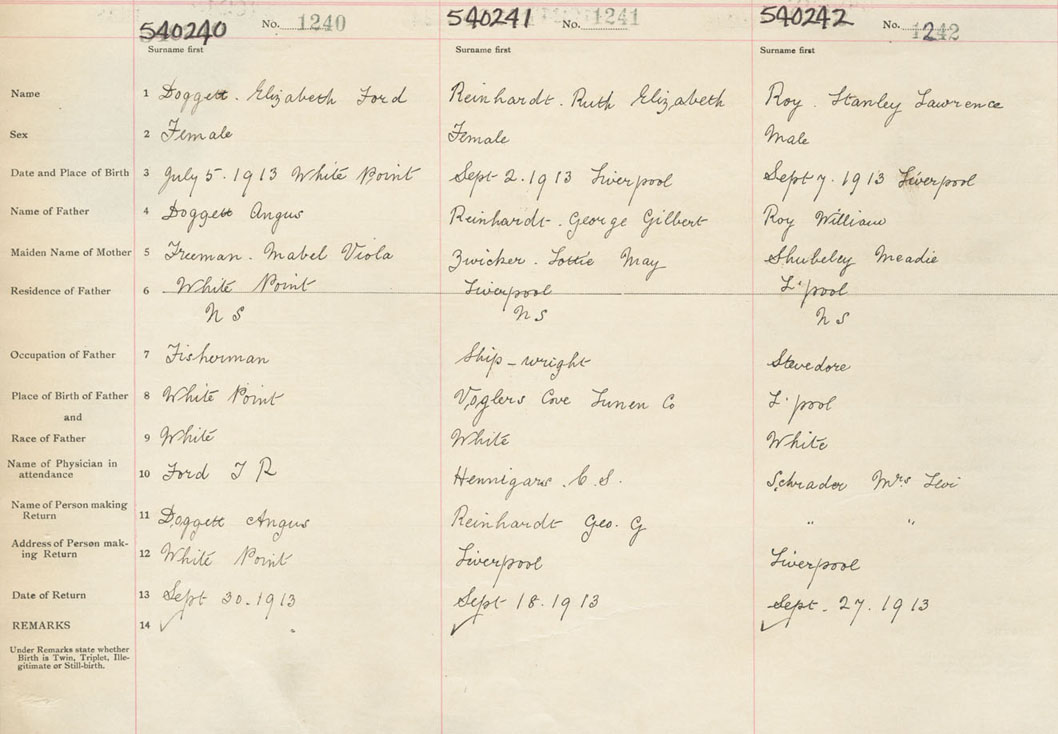 540240 No. 1240 540241 No. 1241 540242 No. 1242
Surname first Surname first Surname first
Name 1 Doggett. Elizabeth Ford Reinhardt. Ruth Elizabeth Roy. Stanley Lawrence
Sex 2 Female Female Male
Date and Place of Birth 3 July 5. 1913 White Point Sept 2. 1913 Liverpool Sept 7. 1913 Liverpool
Name of Father 4 Doggett Angus Reinhardt. George Gilbert Roy William
Maiden Name of Mother 5 Freeman. Mabel Viola Zwicker. Lottie May Shubeley Meadie
Residence of Father 6 White Point Liverpool L'pool
N S N S N S
Occupation of Father 7 Fisherman Ship-wright Stevedore
Place of Birth of Father 8 White Point Voglers Cove Lunen Co L'pool
and
Race of Father 9 White White White
Name of Physician in
attendance 10 Ford T R Hennigars. C. S. Schrader Mrs Levi
Name of Person making
Return 11 Doggett Angus Reinhardt Geo. G " "
Address of Person mak-
ing Return 12 White Point Liverpool Liverpool
Date of Return 13 Sept 30. 1913 Sept 18. 1913 Sept. 27. 1913
REMARKS 14
Under Remarks state whether
Birth is Twin, Triplet, Ille-
gitimate or Still-birth.